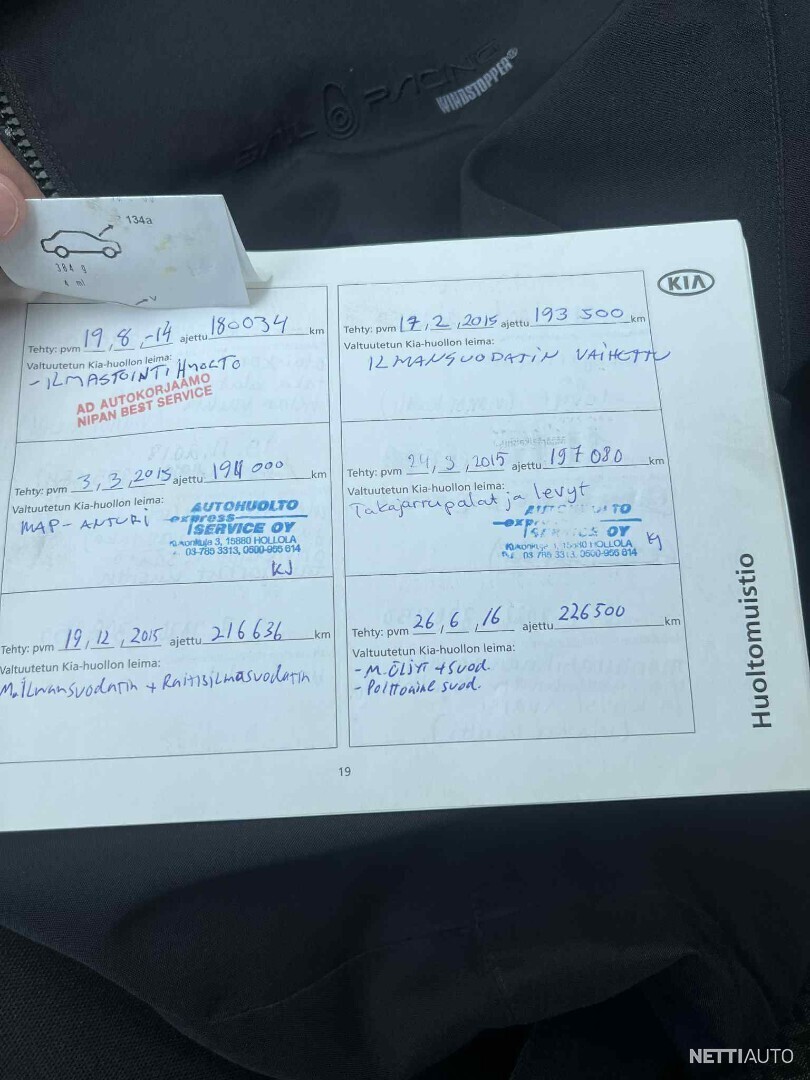 GAL RACING
WINDSTOPPER®
134a
384 g
KIA
Tehty: pvm 19,8,-14 ajettu 180034 km
Valtuutetun Kia-huollon leima:
- ILMASTOINTI HUOLTO
AD AUTOKORJAAMO
NIPAN BEST SERVICE
Tehty: pvm 17,2,2015 ajettu 193 500 km
Valtuutetun Kia-huollon leima:
ILMANSUODATIN VAIHETTU
Tehty: pvm 3,3,2015 ajettu 194 000 km
Valtuutetun Kia-huollon leima:
MAP-ANTURI
AUTOHUOLTO
express
SERVICE OY
3, 15880 HOLLOLA
03-785 3313, 0500-955 614
KJ
Tehty: pvm 24,3,2015 ajettu 197 080 km
Valtuutetun Kia-huollon leima:
Takajarrupalat ja levyt
SERVICE OY
HOLLOLA
03-785 3313, 0500-955 614
KJ
Tehty: pvm 19,12,2015 ajettu 216636 km
Valtuutetun Kia-huollon leima:
M.Ilmansuodatin + Raitisilmasuodatin
Tehty: pvm 26,6,16 ajettu 226500 km
Valtuutetun Kia-huollon leima:
- M.ÖLJYT + SUOD.
- Polttoaine suod.
Huoltomuistio
19
NETTIAUTO